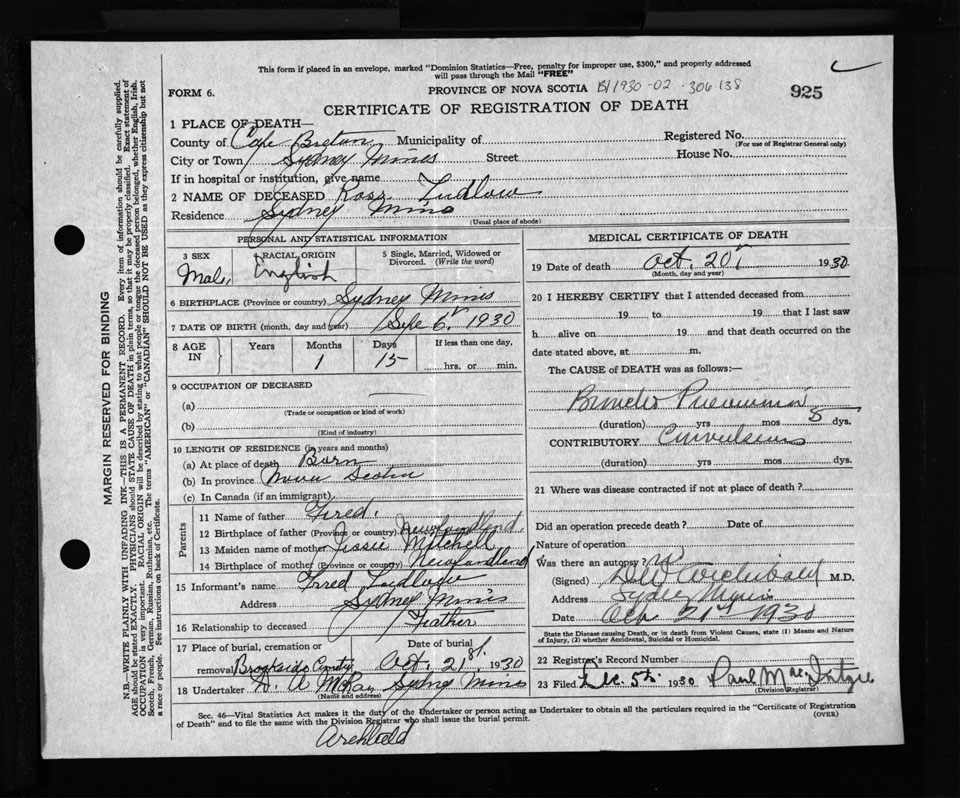 This form if placed in an envelope, marked "Dominion Statistics—Free, penalty for improper use, $300," and properly addressed
will pass through the Mail "FREE"
FORM 6.
PROVINCE OF NOVA SCOTIA B1930-02-306138
925
CERTIFICATE OF REGISTRATION OF DEATH
1 PLACE OF DEATH—
County of Cape Breton Municipality of
Registered No.
(For use of Registrar General only)
City or Town Sydney Mines Street House No.
If in hospital or institution, give name
2 NAME OF DECEASED Ross Ludlow
Residence Sydney Mines
(Usual place of abode)
PERSONAL AND STATISTICAL INFORMATION
3 SEX
Male
4 RACIAL ORIGIN
English
5 Single, Married, Widowed or
Divorced. (Write the word)
6 BIRTHPLACE (Province or country) Sydney Mines
7 DATE OF BIRTH (month, day and year) Sept 6, 1930
8 AGE
IN
Years Months Days If less than one day,
1 15
hrs. or min.
9 OCCUPATION OF DECEASED
(a)
(Trade or occupation or kind of work)
(b)
(Kind of industry)
10 LENGTH OF RESIDENCE (in years and months)
(a) At place of death Born
(b) In province Nova Scotia
(c) In Canada (if an immigrant)
Parents
11 Name of father Fred.
12 Birthplace of father (Province or country) Newfoundland
13 Maiden name of mother Jessie Mitchell
14 Birthplace of mother (Province or country) Newfoundland
15 Informant's name Fred Ludlow
Address Sydney Mines
16 Relationship to deceased Father
17 Place of burial, cremation or Date of burial
removal Brookside Cemetery Oct. 21st, 1930
18 Undertaker D. A. McRay Sydney Mines
(Name and address)
MEDICAL CERTIFICATE OF DEATH
19 Date of death Oct. 20, 1930
(Month, day and year)
20 I HEREBY CERTIFY that I attended deceased from
19 to 19 that I last saw
h alive on 19 and that death occurred on the
date stated above, at m.
The CAUSE of DEATH was as follows:—
Broncho Pneumonia
(duration) yrs mos 8 dys.
CONTRIBUTORY Convulsions
(duration) yrs mos dys.
21 Where was disease contracted if not at place of death?
Did an operation precede death? Date of
Nature of operation
Was there an autopsy? No
(Signed) Archibald M.D.
Address Sydney Mines
Date Oct 21st 1930
State the Disease causing Death, or in death from Violent Causes, state (1) Means and Nature
of Injury, (2) whether Accidental, Suicidal or Homicidal.
22 Registrar's Record Number
23 Filed Dec. 5th 1930 Paul MacIntyre
(Division Registrar)
Sec. 46—Vital Statistics Act makes it the duty of the Undertaker or person acting as Undertaker to obtain all the particulars required in the "Certificate of Registration
of Death" and to file the same with the Division Registrar who shall issue the burial permit.
(OVER)
Archibald
MARGIN RESERVED FOR BINDING
N.B.—WRITE PLAINLY WITH UNFADING INK—THIS IS A PERMANENT RECORD. Every item of information should be carefully supplied.
AGE should be stated EXACTLY. PHYSICIANS should STATE CAUSE OF DEATH in plain terms, so that it may be properly classified. Exact statement of
OCCUPATION is very important. RACIAL ORIGIN will be described by stating to what people or tongue the deceased person belonged, whether English, Irish,
Scotch, French, German, Russian, Ruthenian, etc. The terms "AMERICAN" or "CANADIAN" SHOULD NOT BE USED as they express citizenship but not
a race or people. See instructions on back of Certificate.